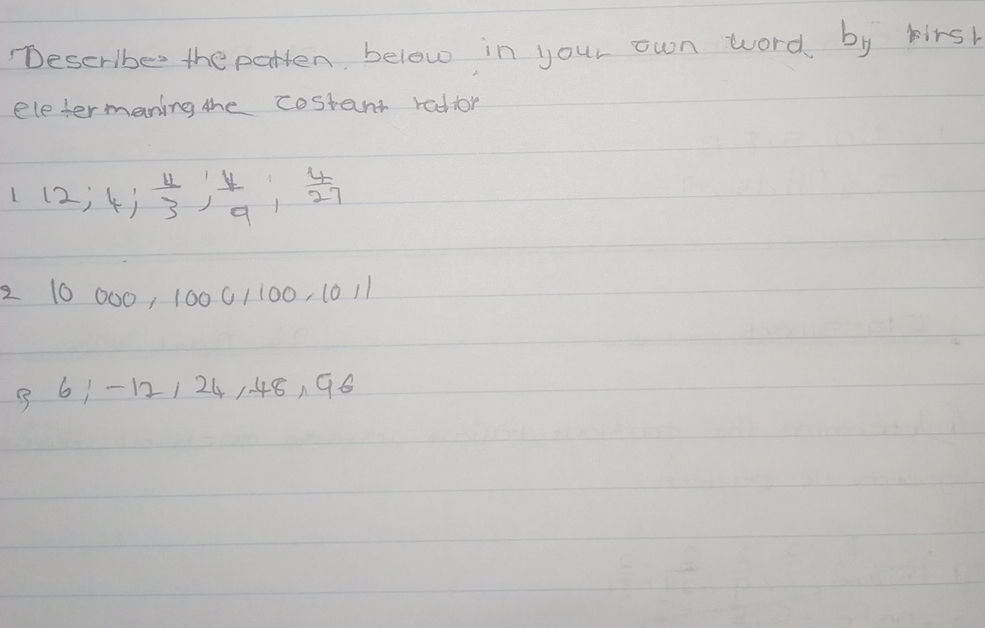 Describes the patten below in your own word by First
eletermaning the costant ratior
1 12; 4; 4/3; 4/9; 4/27
2 10 000, 1000, 100, 10, 1
3 6; -12, 24, -48, 96